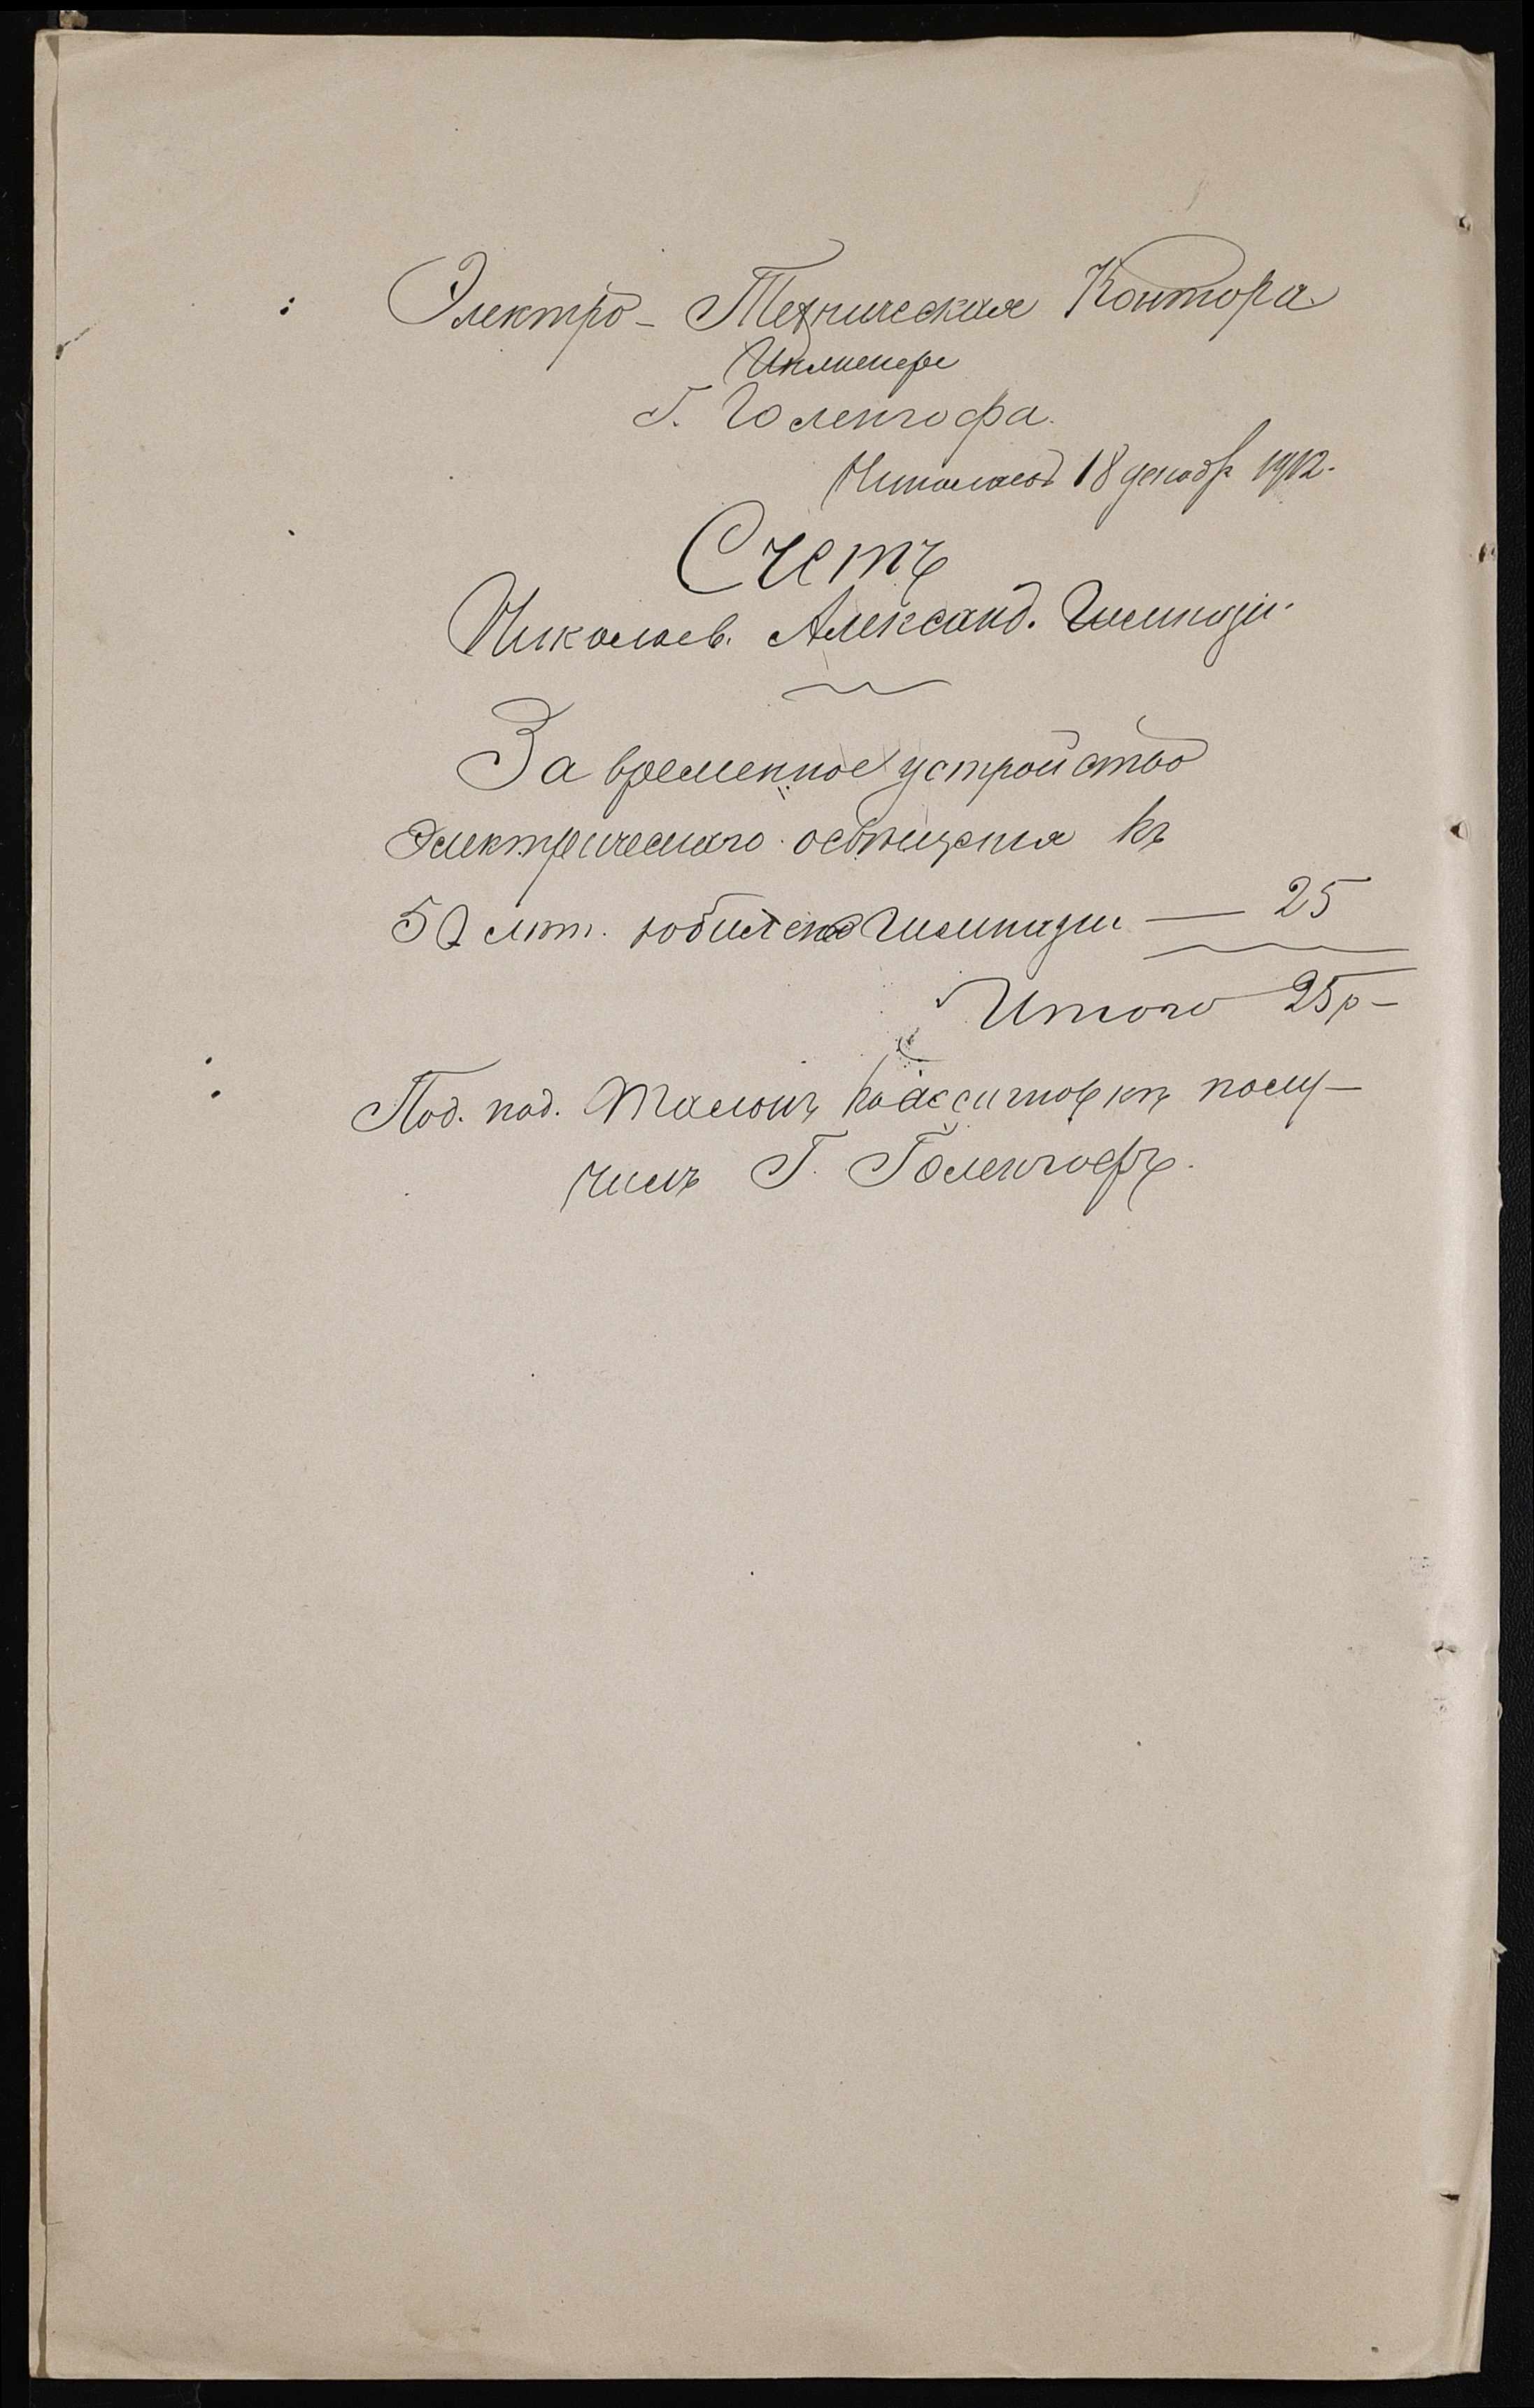 Электро - Техническая Контора
Инженера
Г. Голенгофа.
Николаевъ 18 декабр 1912.
Счетъ
Николаев. Александ. Гимназiи
За временное устройство
электрическаго освѣщенiя къ
50 лѣт. юбилею Гимназiи — 25
Итого 25р —
Под. под. Талонъ къ ассигновкѣ полу-
чилъ Г. Голенгофъ.